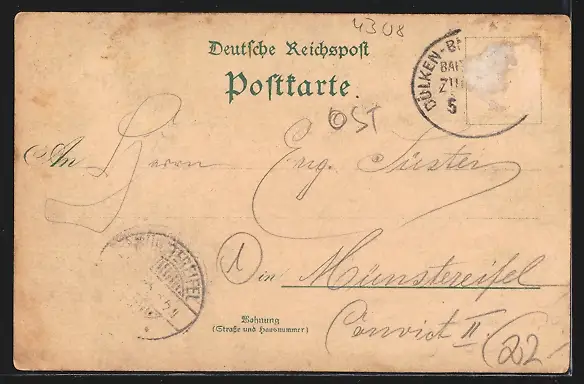 4308
Deutsche Reichspost
Postkarte
DÜLKEN-B
BAH
ZU
5
OST
An Herrn Eug. Füsten
1
in Münstereifel
Wohnung
(Straße und Hausnummer)
Convict II
22